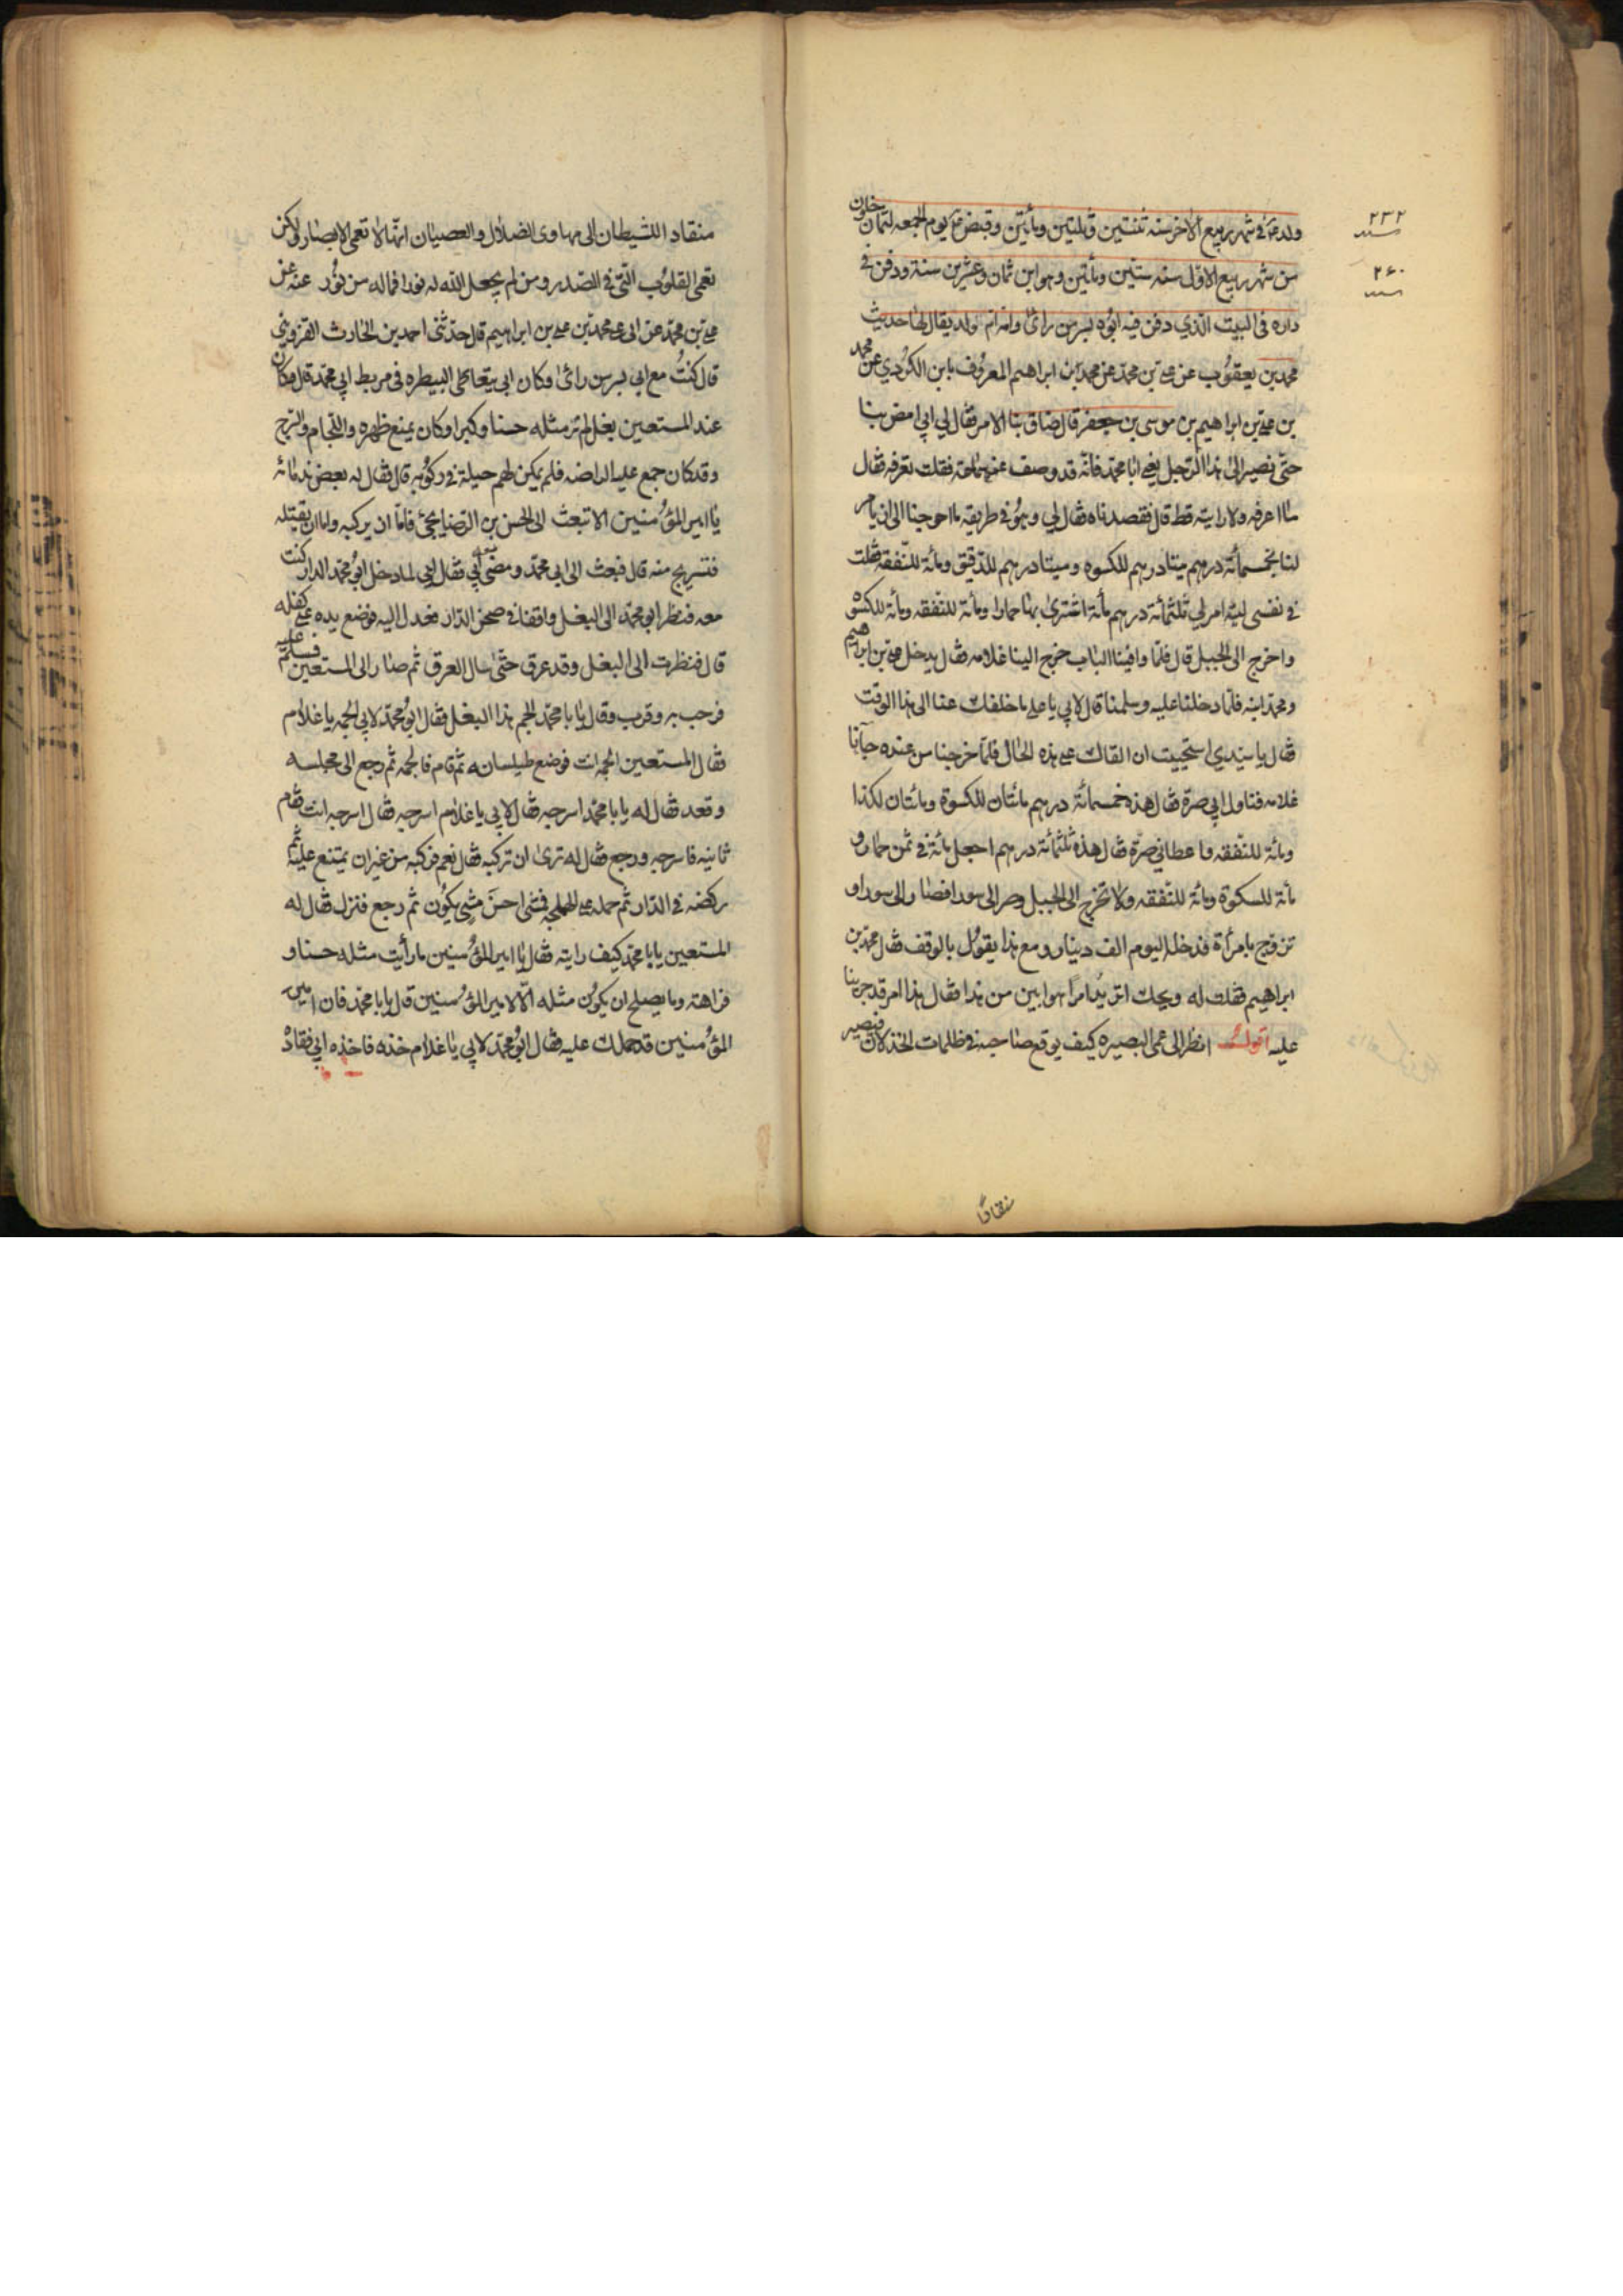 ولد ع فى شهر ربيع الاخر سنه ثنتين وثلثين ومأتين وقبض ع يوم الجمعه لثمان خلون
من شهر ربيع الاول سنه ستين ومأتين وهو ابن ثمان وعشرين سنة ودفن فى
داره فى البيت الذي دفن فيه ابوه بسر من رائ وامه ام ولد يقال لها حديث
محمد بن يعقوب عن على بن محمد عن محمد بن ابراهيم المعروف بابن الكردي عن محمد
بن على بن ابراهيم بن موسى بن جعفر قال ضاق بنا الامر فقال لي ابي امض بنا
حتى نصير الى هذا الرجل يعنى ابا محمد فانه قد وصف عنه سماحة فقلت تعرفه فقال
ما اعرفه ولا رايته قط قال فقصدناه فقال لي وهو فى طريقه ما احوجنا الى ان يامر
لنا بخمسمأة درهم ميتا درهم للكسوه وميتا درهم للدقيق ومأة للنفقه فقلت
فى نفسى ليته امر لي بثلثمأة درهم مأة اشترى بها حمارا ومأة للنفقه ومأة للكسوه
واخرج الى الجبل قال فلما وافينا الباب خرج الينا غلامه فقال يدخل على بن ابراهيم
ومحمد ابنه فلما دخلنا عليه وسلمنا قال لابي يا على ما خلفك عنا الى هذا الوقت
فقال يا سيدي استحييت ان القاك على هذه الحال فلما خرجنا من عنده جآئنا
غلامه فناول ابي صرة فقال هذه خمسمائة درهم مائتان للكسوة ومائتان لكذا
ومائة للنفقه واعطانى صرة فقال هذه ثلثمائة درهم اجعل مائة فى ثمن حمار و
مأة للسكوة ومأة للنفقه ولا تخرج الى الجبل وصر الى سورا فصار الى سورا و
تزوج بامرأة فدخله اليوم الف دينار ومع هذا يقول بالوقف فقال محمد بن
ابراهيم فقلت له ويحك اتريد امرا هو ابين من هذا فقال هذا امر قد جرينا
عليه اقول انظر الى عمى البصيره كيف يوقع صاحبه فى ظلمات الخذلان فيصير
منقادا
٢٣٢
سنه
٢۶٠
سنه
منقادا للشيطان الى مهاوى الضلال والعصيان انها لا تعمى الابصار ولكن
تعمى القلوب التى فى الصدر ومن لم يجعل الله له نورا فما له من نور عنه عن
على بن محمد عن ابى على محمد بن على بن ابراهيم قال حدثنى احمد بن الحارث القزوينى
قال كنت مع ابى بسر من رائ وكان ابى يتعاطى البيطره فى مربط ابي محمد قال وكان
عند المستعين بغل لم ير مثله حسنا وكبرا وكان يمنع ظهره واللجام والسرج
وقد كان جمع عليه الراضه فلم يكن لهم حيلة فى ركوبه قال فقال له بعض ندمائه
يا امير المؤمنين الا تبعث الى الحسن بن الرضا يجئ فاما ان يركبه واما ان يقتله
فتستريح منه قال فبعث الى ابي محمد ومضى معه ابي فقال ابي لما دخل ابو محمد الدار كنت
معه فنظر ابو محمد الى البغل واقفا فى صحن الدار فعدل اليه فوضع يده على كفله
قال فنظرت الى البغل وقد عرق حتى سال العرق ثم صار الى المستعين فسلم عليه
فرحب به وقرب وقال يا با محمد الجم هذا البغل فقال ابو محمد لابي الجمه يا غلام
فقال المستعين الجمه انت فوضع طيلسانه ثم قام فالجمه ثم رجع الى مجلسه
وقعد فقال له يا با محمد اسرجه فقال لابي يا غلام اسرجه فقال اسرجه انت فقام
ثانيه فاسرجه ورجع فقال له ترى ان تركبه فقال نعم فركبه من غير ان يمتنع عليه ثم
ركضه فى الدار ثم حمله على الهملجه فمشى احسن مشي يكون ثم رجع فنزل فقال له
المستعين يا با محمد كيف رايته فقال يا امير المؤمنين ما رأيت مثله حسنا و
فراهة وما يصلح ان يكون مثله الا لامير المؤمنين قال يا با محمد فان امير
المؤمنين قد حملك عليه فقال ابو محمد لابي يا غلام خذه فاخذه ابي فقاده